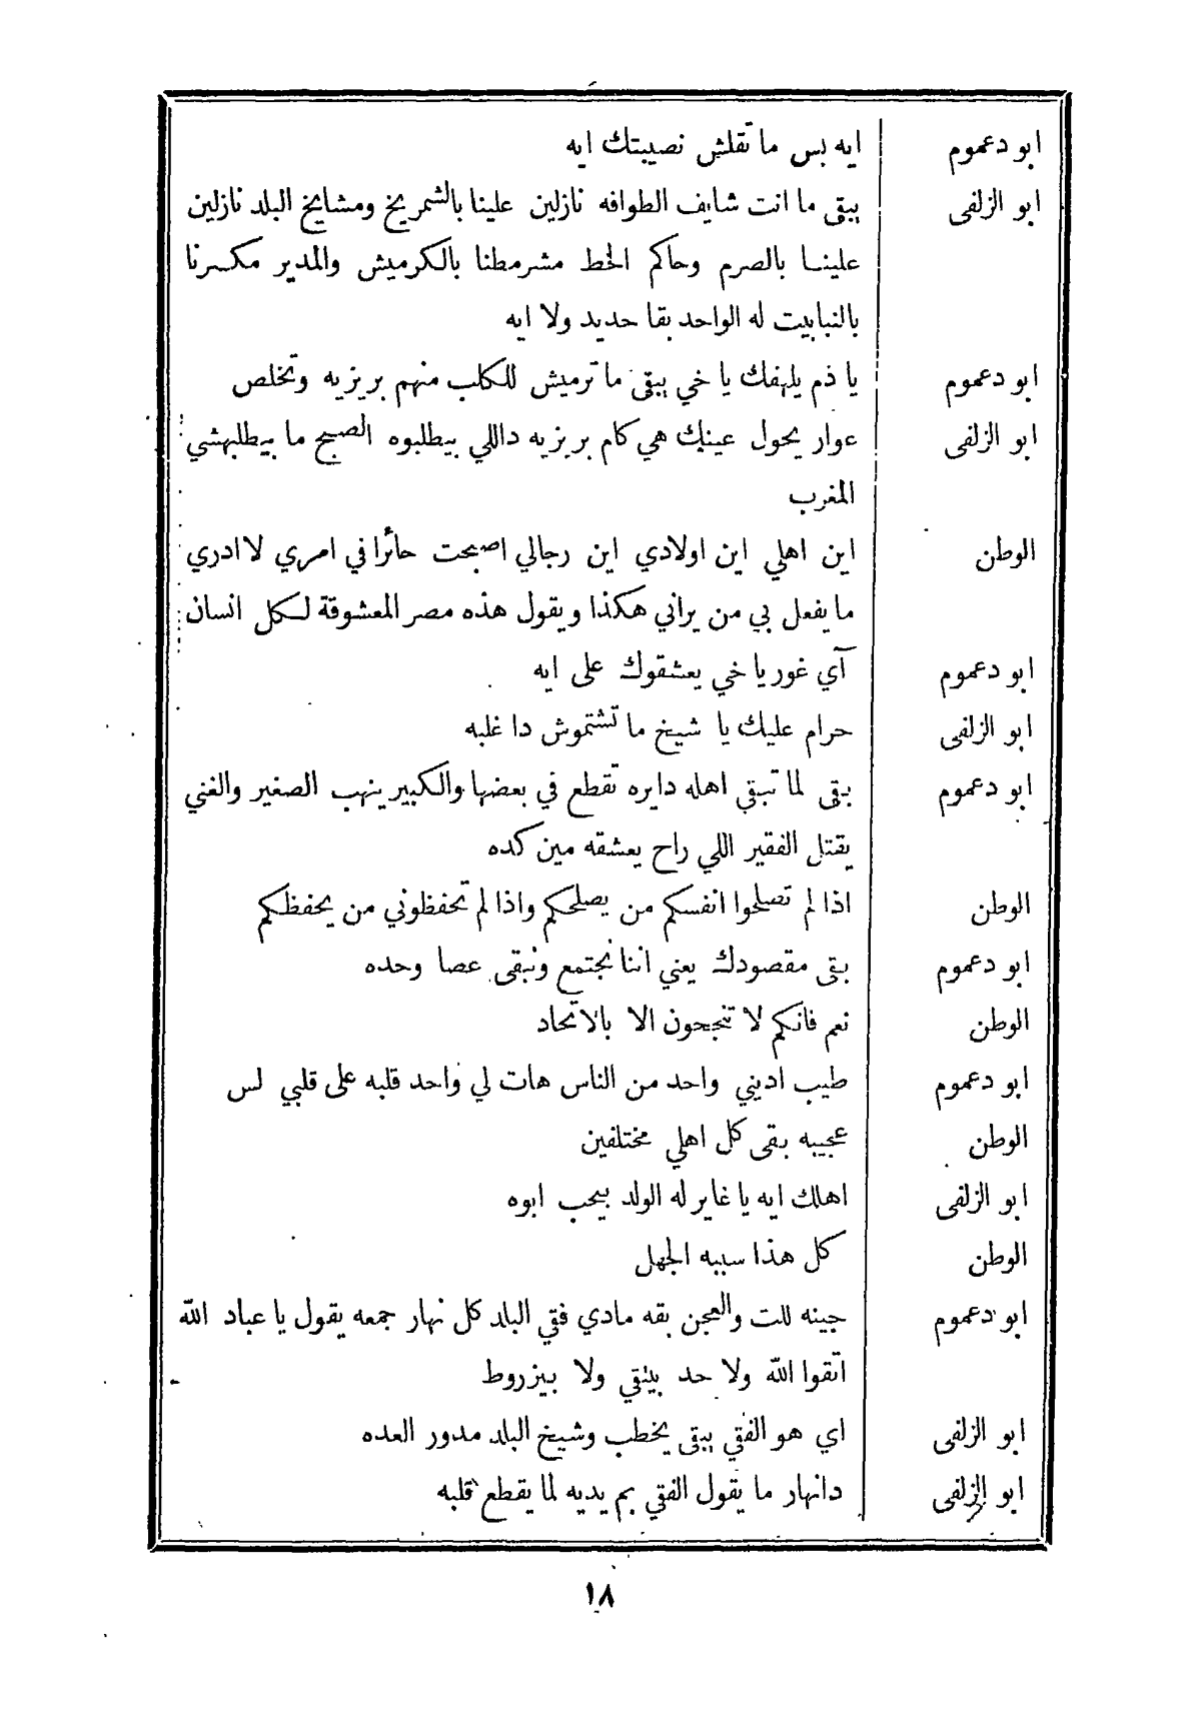 ابو دعموم ايه بس ما تقلش نصيبتك ايه
ابو الزلفى يبقى ما انت شايف الطوافه نازلين علينا بالشمريخ ومشايخ البلد نازلين
علينا بالصرم وحاكم الخط مشرمطنا بالكرميش والمدير مكسرنا
بالنبابيت له الواحد بقا حديد ولا ايه
ابو دعموم يا ذم يلهفك يا خي يبقى ما ترميش للكلب منهم بريزيه وتخلص
ابو الزلفى عوار يحول عينك هي كام بريزيه داللي بيطلبوه الصبح ما بيطلبهشي
المغرب
الوطن اين اهلي اين اولادي اين رجالي اصبحت حائرا في امري لا ادري
ما يفعل بي من يراني هكذا ويقول هذه مصر المعشوقة لكل انسان
ابو دعموم آي غور يا خي يعشقوك على ايه
ابو الزلفى حرام عليك يا شيخ ما تشتموش دا غلبه
ابو دعموم بقى لما تبقي اهله دايره تقطع في بعضها والكبير ينهب الصغير والغني
يقتل الفقير اللي راح يعشقه مين كده
الوطن اذا لم تصلحوا انفسكم من يصلحكم واذا لم تحفظوني من يحفظكم
ابو دعموم بقى مقصودك يعني اننا نجتمع ونبقى عصا وحده
الوطن نعم فانكم لا تنجحون الا بالاتحاد
ابو دعموم طيب اديني واحد من الناس هات لي واحد قلبه على قلبي لس
الوطن عجيبه بقى كل اهلي مختلفين
ابو الزلفى اهلك ايه يا غاير له الولد بيحب ابوه
الوطن كل هذا سببه الجهل
ابو دعموم جينه للت والعجن بقه مادي فقي البلد كل نهار جمعه يقول يا عباد الله
اتقوا الله ولا حد بيتقي ولا بيزروط
ابو الزلفى اي هو الفقي يبقى يخطب وشيخ البلد مدور العده
ابو الزلفى دانهار ما يقول الفقي بم يديه لما يقطع قلبه
١٨